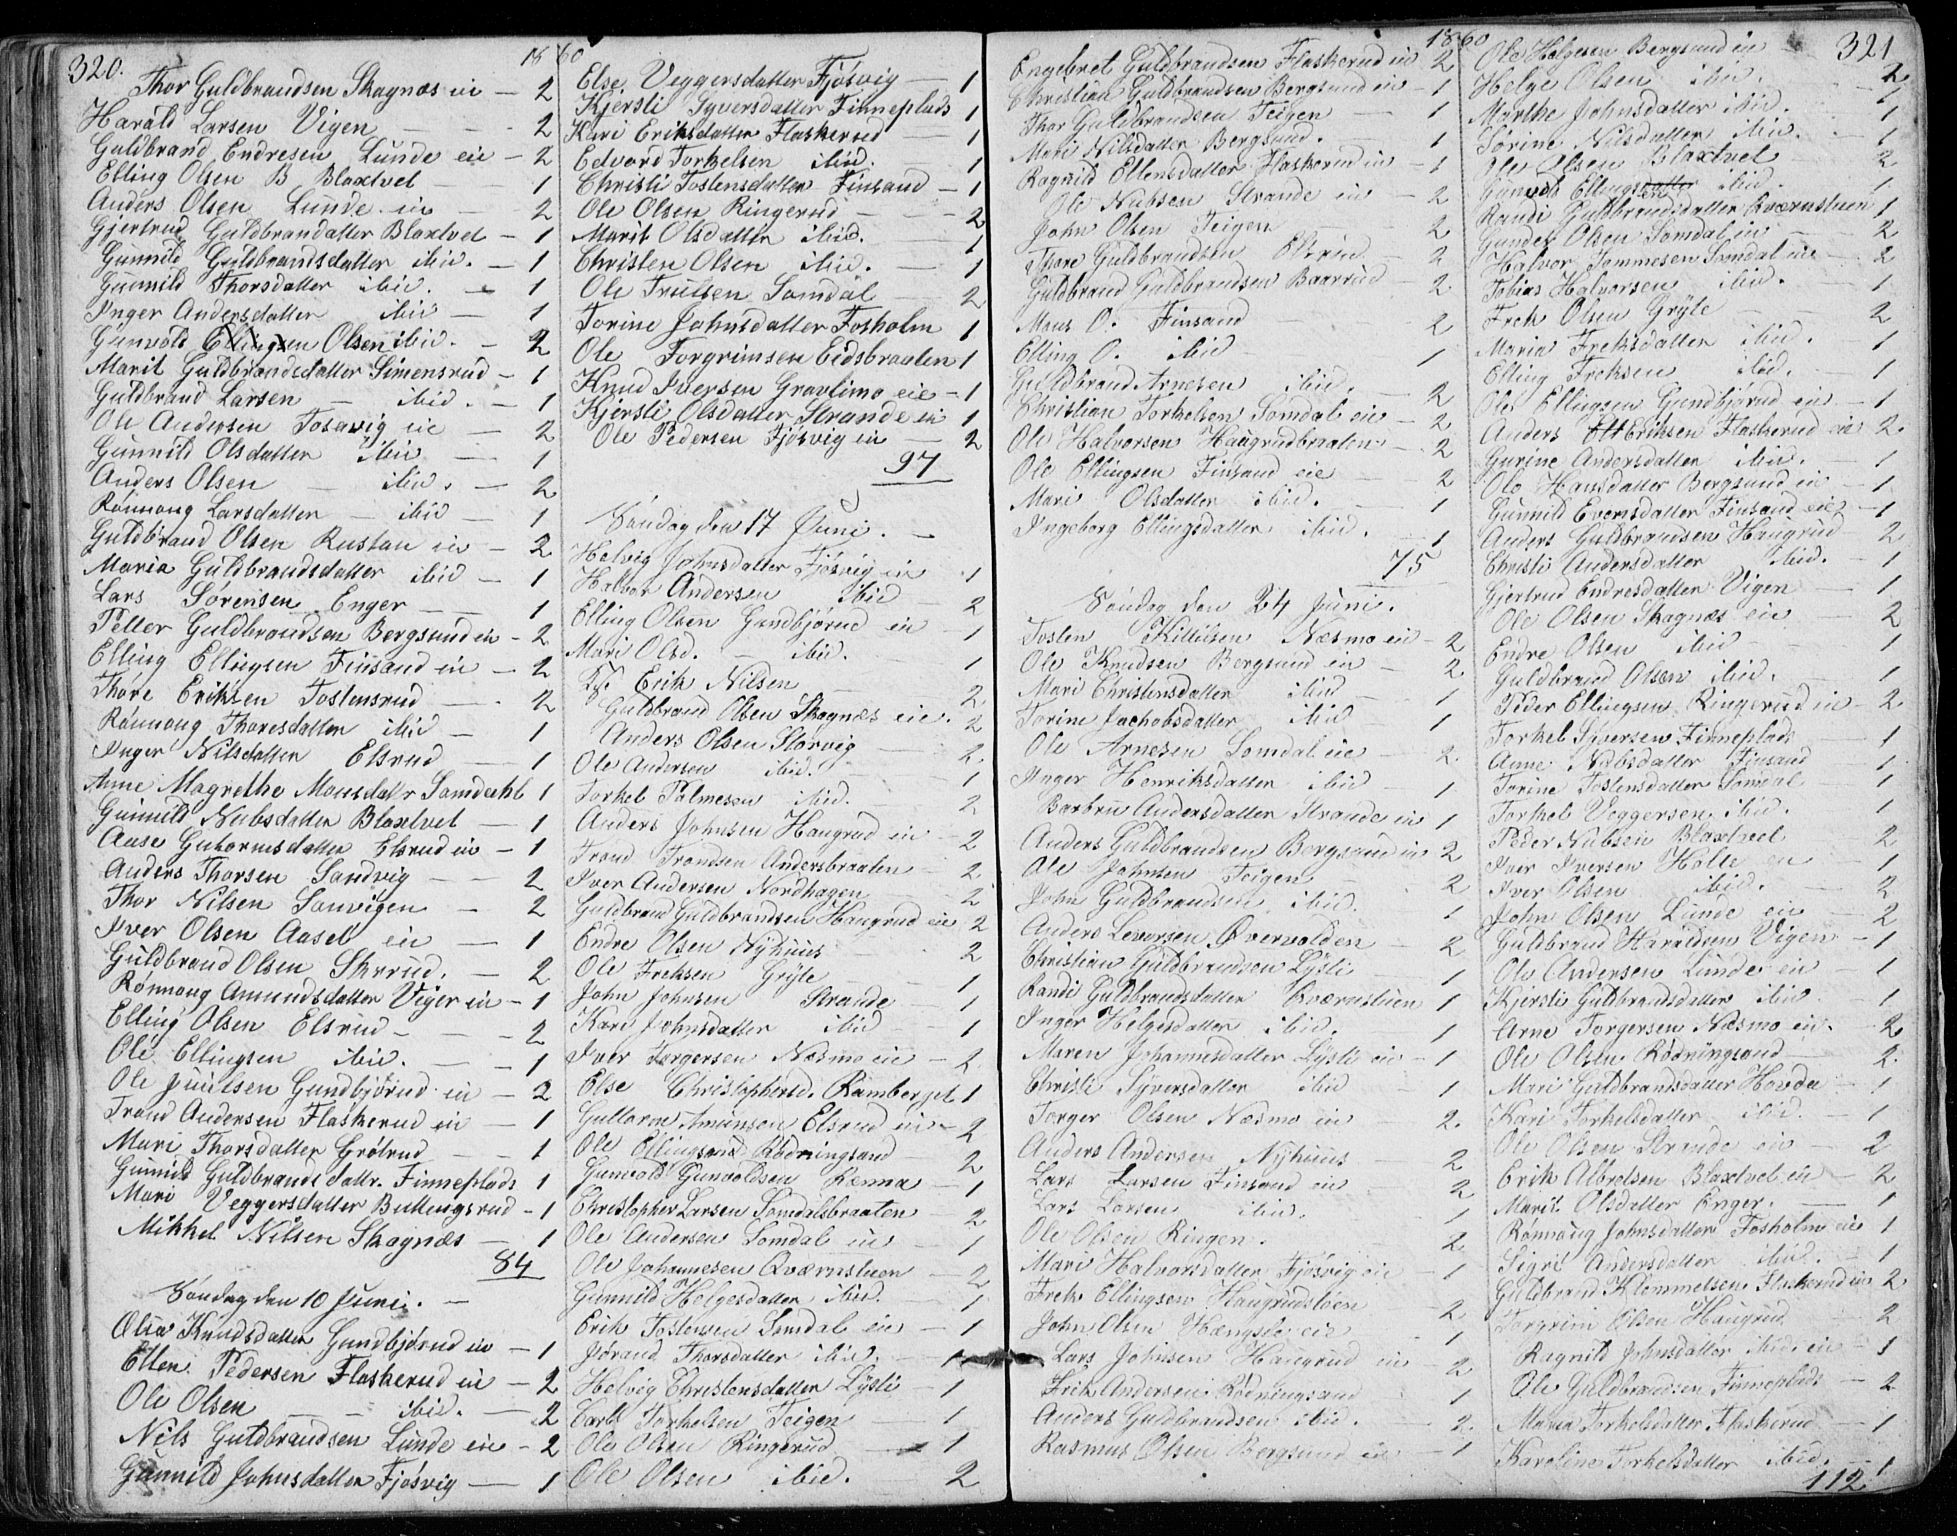 320.
1860
Thor Guldbrandsen Skagnæs eie — 2
Harald Larsen Vigen — 2
Guldbrand Endresen Lunde eie — 2
Elling Olsen B Blaxtvet — 1
Anders Olsen Lunde eie — 2
Gjertrud Guldbrandatter Blaxtvet — 1
Gunnild Guldbrandsdatter ibid. — 1
Gunnild Thorsdatter ibid. — 1
Inger Andersdatter ibid — 1
Gunvold Ellingsen Olsen ibid. — 2
Marit Guldbrandsdatter Simensrud — 1
Guldbrand Larsen — ibid. — 1
Ole Andersen Fosavig eie — 2
Gunnild Olsdatter ibid — 1
Anders Olsen — ibid. — 2
Rönnaug Larsdatter — ibid — 1
Guldbrand Olsen Rustan eie — 2
Maria Guldbrandsdatter ibid — 1
Lars Sorensen Enger — 1
Petter Guldbrandsen Bergsund eie — 2
Elling Ellingsen Finsand eie — 2
Thore Eriksen Tostensrud — 2
Rönnaug Thoresdatter ibid — 1
Inger Nilsdatter Elsrud — 1
Anne Magrethe Monsdatr Samdahl 1
Gunnild Nubsdatter Blaxtvet — 1
Aase Guttormsdatter Elsrud eie — 1
Anders Thorsen Sandvig — 2
Thor Nilsen Sanvigen — 2
Iver Olsen Aaset eie — 1
Guldbrand Olsen Skerud. — 2
Rönnaug Amundsdatter Viger eie — 1
Elling Olsen Elsrud — 2
Ole Ellingsen ibid. — 1
Ole Juulsen Gundbjörud eie — 2
Trond Andersen Flaskerud eie — 1
Mari Thorsdatter Grötrud — 1
Gunnild Guldbrands datr. Finneplads 1
Mari Veggersdatter Buttingsrud — 1
Mikkel Nilsen Skagnæs — 1
84
Söndag den 10 Juni. —
Olia Knudsdatter Gundbjörud eie — 1
Ellen Pedersen Flaskerud eie — 2
Ole Olsen — ibid. — 2
Nils Guldbrandsen Lunde eie — 2
Gunnild Johnsdatter Fjösvig — 1
Else Veggersdatter Fjösvig — 1
Kjersti Syversdatter Finneplads 1
Kari Eriksdatter Flaskerud — 1
Edvard Torkelsen ibid. — 1
Christi Tostensdatter Finsand — 1
Ole Olsen Ringerud — 2
Marit Olsdatter ibid. — 1
Christen Olsen ibid. — 1
Ole Trulsen Somdal — 2
Torine Johnsdatter Fosholm 1
Ole Torgrimsen Eidsbraaten 1
Knud Iversen Gravlimo eie — 1
Kjersti Olsdatter Strande eie 1
Ole Pedersen Fjösvig eie — 2
97
Söndag den 17 Juni. —
Helvig Johnsdatter Fjösvig eie 1
Halvor Andersen ibid 2
Elling Olsen Gundbjörud eie — 1
Mari Olsd. — ibid. — 1
Erik Nilsen 2
Guldbrand Olsen Skagnæs eie. 2
Anders Olsen Storvig — 2.
Ole Andersen ibid. 1
Torkel Palmesen ibid. 2
Anders Johnsen Haugrud eie — 2
Trond Trondsen Andersbraaten 2
Iver Andersen Nordhagen 2
Guldbrand Guldbrandsen Haugrud eie 2
Endre Olsen Nyhuus 2
Ole Freksen Gryte — 1
John Johnsen Strande 1
Kari Johnsdatter ibid 1
Iver Torgersen Næsmo eie — 2
Else Christophersd. Ramberget 1
Guttorm Amunsen Elsrud eie — 2
Ole Ellingsen Rödningsand 2
Gunvold Gunvoldsen Rænna — 1
Christopher Larsen Somdalsbraaten — 2
Ole Andersen Somdal eie — 1
Ole Johannesen Qværnstuen — 2
Gunnild Helgesdatter ibid. 1
Erik Tostensen Somdal eie — 1
Jörand Thorsdatter ibid. — 1
Helvig Christensdatter Lysli — 1
Carl Torkelsen Teigen — 1
Ole Olsen Ringerud — 1
Ole Olsen ibid. 2
1860
321
Engebret Guldbrandsen Flaskerud eie 2
Christian Guldbrandsen Bergsund eie — 1
Thor Guldbrandsen Teigen — 1
Mari Nilsdatter Bergsund. 1
Ragnild Ellensdatter Flaskerud eie — 1
Ole Nubsen Strande eie — 2
John Olsen Teigen 2
Thore Guldbrandsen Elsrud — 2
Guldbrand Guldbrandsen Baarrud — 2
Mons O. Finsand 2
Elling O. ibid 1
Guldbrand Arnesen ibid. 2
Christian Torkelsen Somdal eie — 2
Ole Halvorsen Haugrudbraaten 2
Ole Ellingsen Finsand eie 2
Mari Olsdatter ibid. 1
Ingeborg Ellingsdatter ibid. 1
75
Söndag den 24 Juni.
Tosten Killulsen Næsmo eie — 2
Ole Knudsen Bergsund eie — 2
Mari Christensdatter ibid — 1
Torine Jachobsdatter ibid 1
Ole Arnesen Somdal eie 2.
Inger Henriksdatter ibid — 1
Barbru Andersdatter Strande eie 1
Anders Guldbrandsen Bergsund eie 2
Ole Johnsen Teigen 2
John Guldbrandsen ibid. 1
Anders Levorsen Övervolden — 2
Christian Guldbrandsen Lysli 1
Randi Guldbrandsdatter Kværnstuen 1
Inger Helgesdatter ibid. 1
Maren Johannesdatter Lysli eie — 1
Christi Syversdatter ibid 1
Torger Olsen Næsmo eie — 2.
Anders Andersen Nyhuus — 2
Lars Larsen Finsand eie 2
Lars Larsen ibid. 1
Ole Olsen Ringen. 2
Mari Halvorsdatter Fjösvig eie — 1
Frek Ellingsen Haugrudstöen 2
John Olsen Hængsle eie 1
Lars Johnsen Haugrud eie 2
Erik Andersen Rödningsand 1
Anders Guldbrandsen ibid. 2.
Rasmus Olsen Bergsund eie — 1
Ole Helgesen Bergsund eie — 2
Helge Olsen ibid. 1
Marthe Johnsdatter ibid. 1
Torine Nilsdatter ibid. 1
Ole Olsen Blaxtvet 2
Gunvold Ellingsdatter ibid. 1
Randi Guldbrandsdatter Kværnstuen 1
Gunder Olsen Somdal eie — 2
Halvor Tommesen Somdal eie — 2
Tobias Halvorsen ibid. — 1
Frek Olsen Gryte — 2
Maria Freksdatter ibid. 1
Elling Freksen ibid. — 1
Ole Ellingsen Gundbjörud eie — 1
Anders Eriksen Flaskerud eie 2.
Gurine Andersdatter ibid. — 1
Ole Hansdatter Bergsund eie — 1
Gunnild Evensdatter Finsand eie — 1
Anders Guldbrandsen Haugrud 2
Christi Andersdatter ibid. — 1
Gjertrud Endresdatter Vigen — 1
Ole Olsen Skagnæs eie — 2
Endre Olsen ibid — 1
Guldbrand Olsen ibid. — 1
Peder Ellingsen Ringerud eie — 2
Torkel Syversen Finneplads — 1
Anne Nubsdatter Finsand 1
Torine Tostensdatter Somdal 1
Torkel Veggersen ibid. 1
Peder Nubsen Blaxtvet 2
Iver Iversen Holte eie — 1
Iver Olsen ibid. — 2
John Olsen Lunde eie — 2
Guldbrand Haraldsen Vigen — 1
Ole Andersen Lunde eie — 1
Kjersti Guldbrandsdatter ibid. 1
Arne Torgersen Næsmo eie. 2
Ole Olsen Rödningsand 2.
Mari Guldbrandsdatter Hovde — 1
Kari Torkelsdatter ibid. — 1
Ole Olsen Strande eie — 2
Erik Albretsen Blaxtvet eie — 2
Marit Olsdatter Enger. — 1
Rönnaug Johnsdatter Fosholm eie 1
Sigrit Andersdatter ibid. — 1
Guldbrand Klemmetsen Flaskerud eie 2.
Torgrim Olsen Haugrud 2
Ragnild Johnsdatter ibid. eie — 1
Ole Guldbrandsen Finneplads — 2
Maria Torkelsdatter Flaskerud — 1
Karoline Torkelsdatter ibid. — 1
112